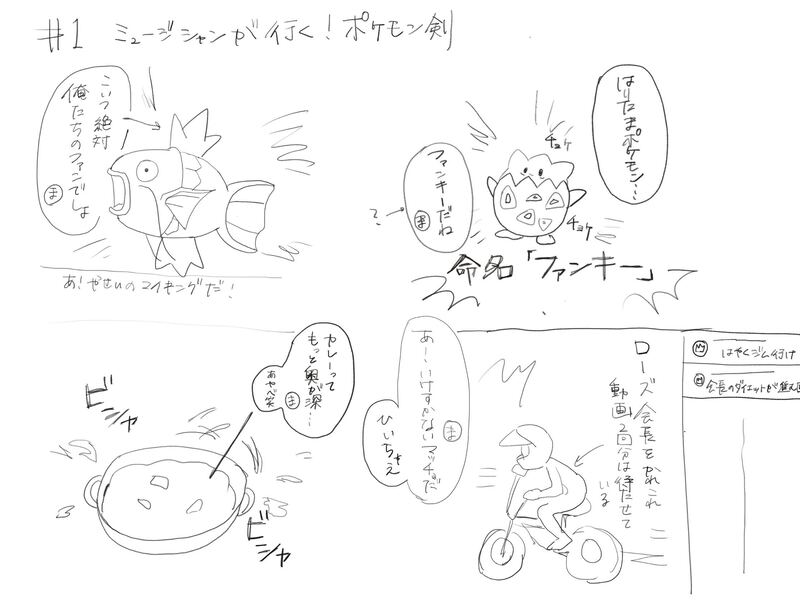 #1 ミュージシャンが行く！ポケモン剣
こいつ絶対
俺たちのファンでしょ
ま
あ！やせいのコイキングだ！
はりたまポケモン…
チョケ
ファンキーだね
ま
?
チョケ
命名「ファンキー」
カレーって
もっと奥が深…
ま
あやべ笑
ビシャ
ビシャ
あーいけすかないマッチョだ
ま
ひいちゃえ
ローズ会長をかれこれ
動画2回分は待たせて
いる
はやくジム行け
会長のダイエットが